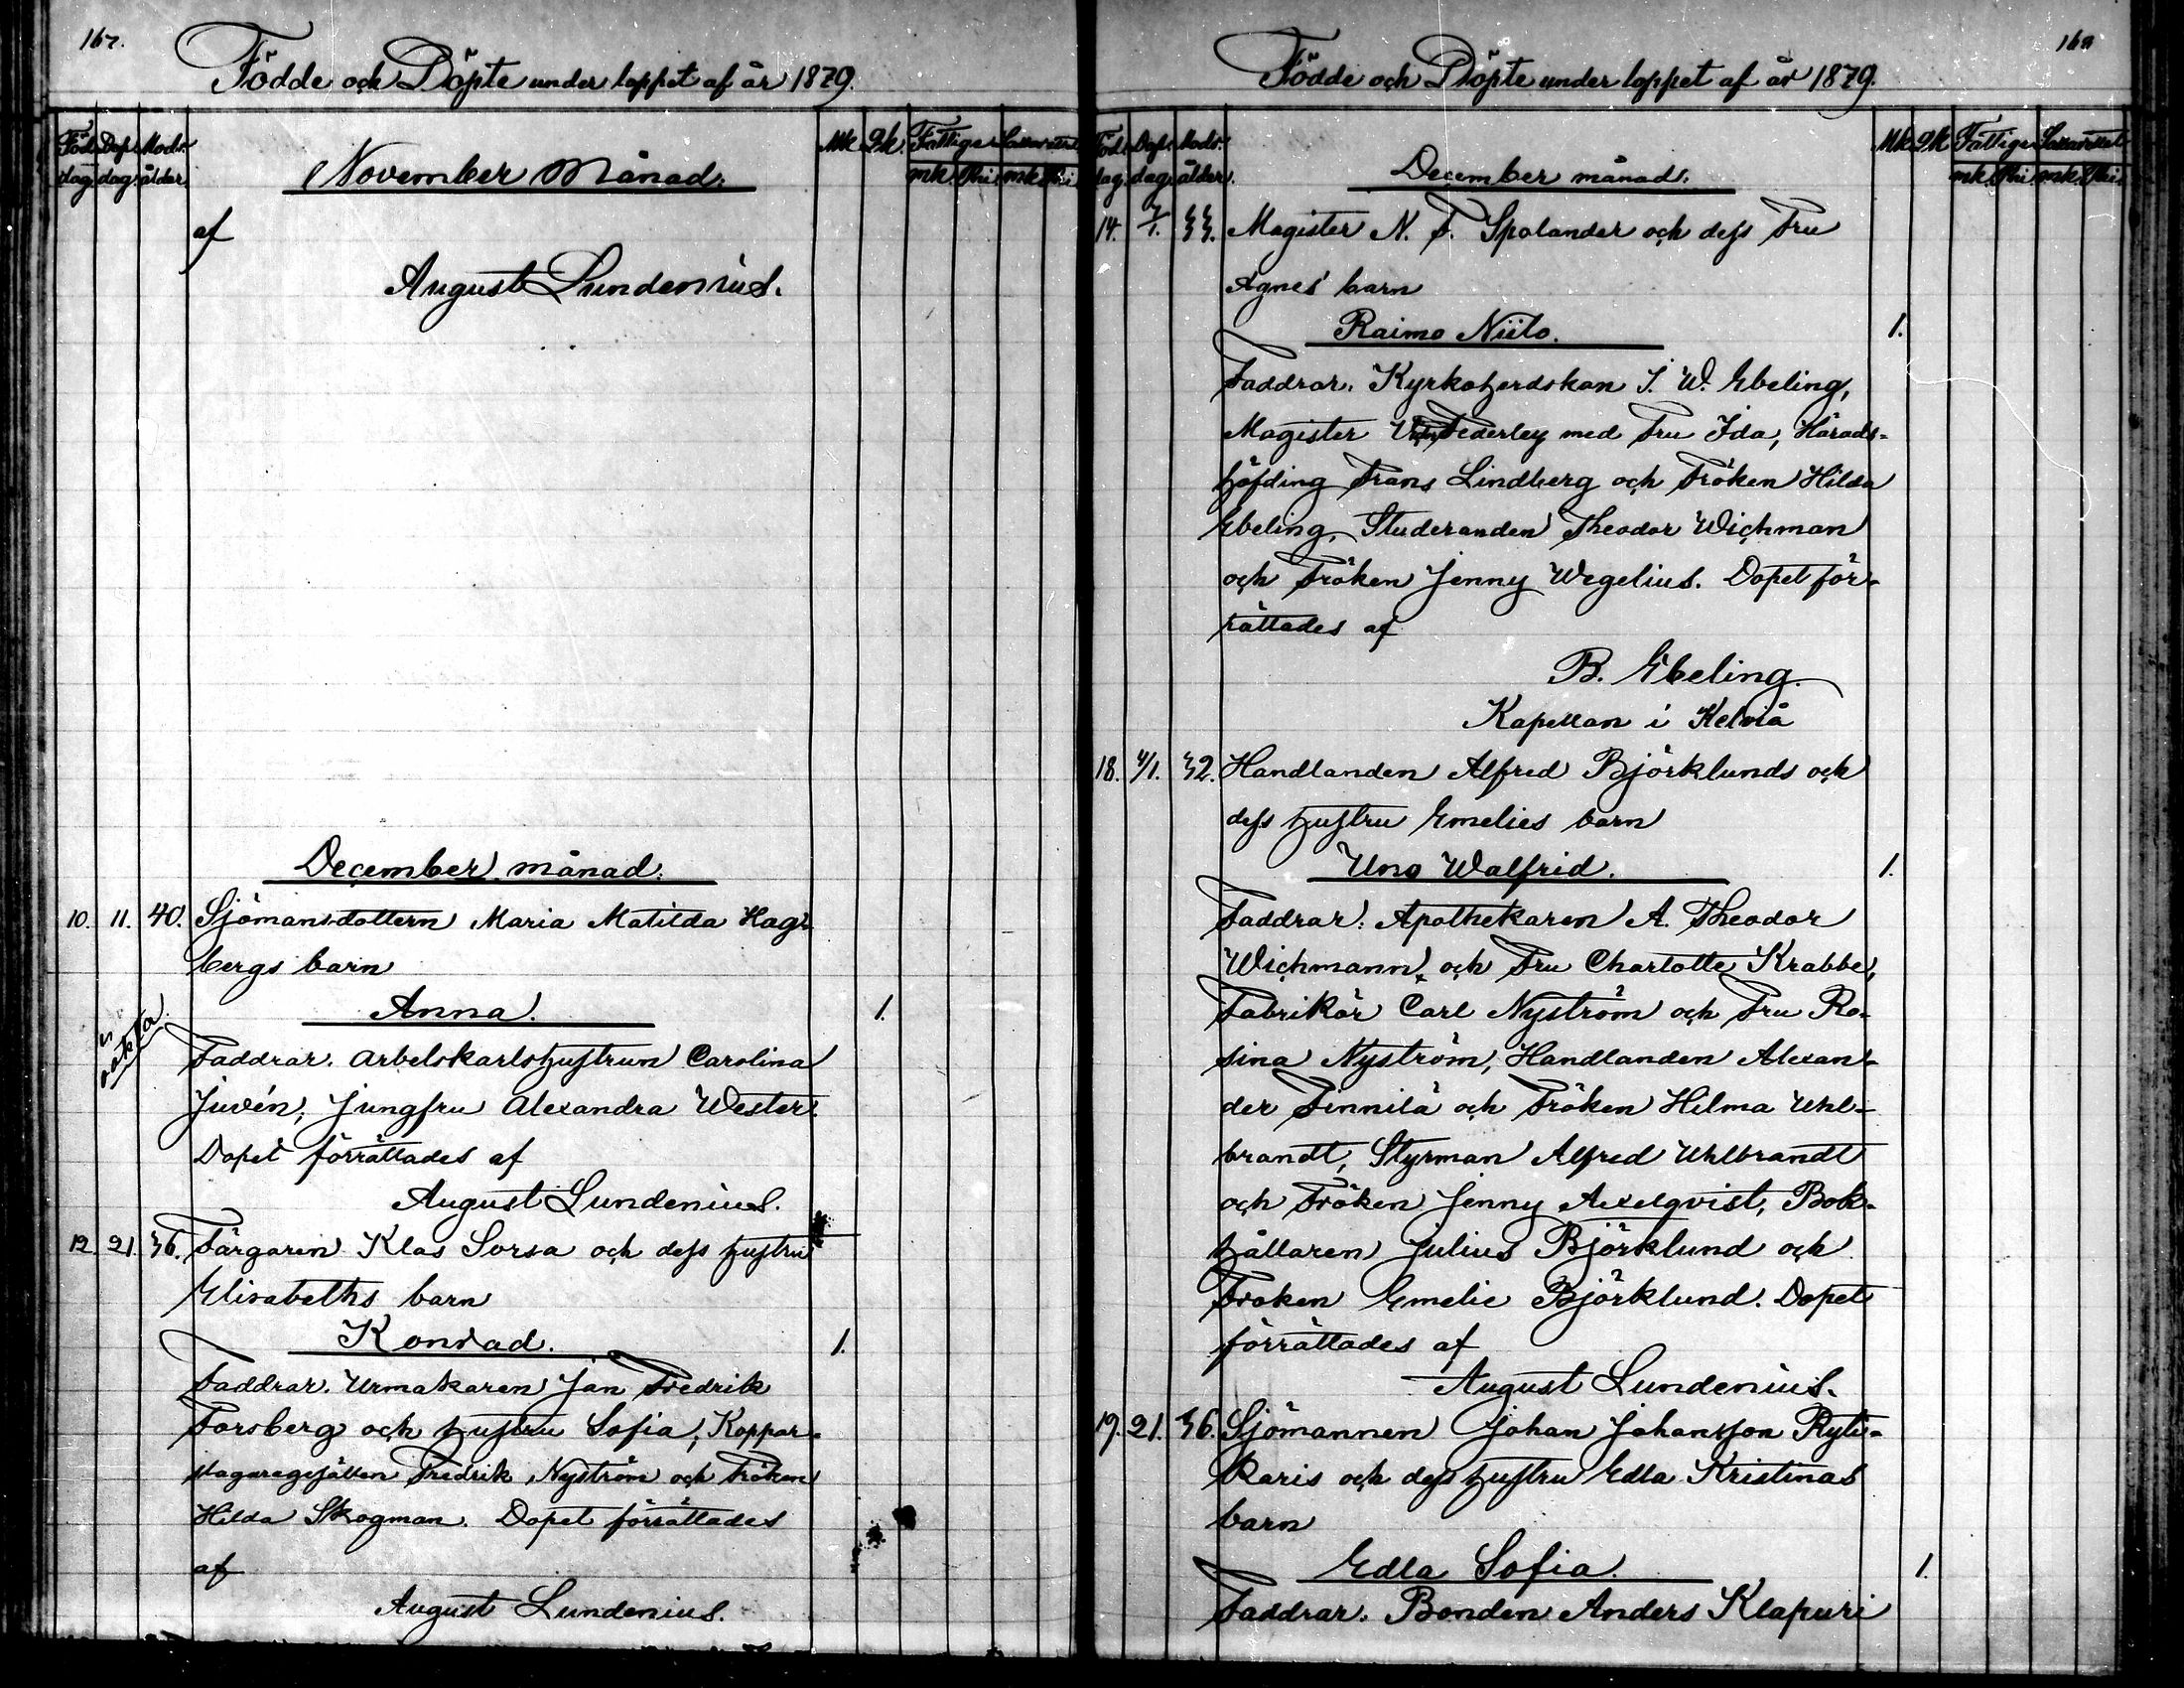 167.
Födde och Döpte under loppet af år 1879.
Föd. dag. Dop. dag. Mods. ålder. November Månad. Mk. Qk. Fattiga mk. Pni mk. Pni
af
August Lundenius.
December månad.
10. 11. 40. Sjömansdottern Maria Matilda Hag-
bergs barn
Anna. 1.
oäkta
Faddrar. Arbetskarlshustrun Carolina
Juvén, Jungfru Alexandra Wester.
Dopet förrättades af
August Lundenius.
12. 21. 36. Färgaren Klas Sorsa och dess hustru
Elisabeths barn
Konrad. 1.
Faddrar. Urmakaren Jan Fredrik
Forsberg och hustru Sofia, Koppar-
slagaregesällen Fredrik Nyström och Fröken
Hilda Skogman. Dopet förrättades
af
August Lundenius.
Födde och Döpte under loppet af år 1879.
Föd. dag. Dop. dag. Mods. ålder. December månad. Mk Qk Fattiga mk. Pni mk. Pni
14. 3/1. 33. Magister N. F. Spolander och dess Fru
Agnes' barn
Raimo Niilo. 1.
Faddrar. Kyrkoherdskan S. W. Ebeling,
Magister Federley med Fru Ida, Härads-
höfding Frans Lindberg och Fröken Hilda
Ebeling, Studeranden Theodor Wichman
och Fröken Jenny Wegelius. Dopet för-
rättades af
B. Ebeling.
Kapellan i Kelviå
18. 4/1. 32. Handlanden Alfred Björklunds och
dess hustru Emelies barn
Uno Walfrid. 1.
Faddrar: Apothekaren A. Theodor
Wichmann och Fru Charlotte Krabbe,
Fabrikör Carl Nyström och Fru Ro-
sina Nyström, Handlanden Alexan-
der Finnilä och Fröken Hilma Uhl-
brandt, Styrman Alfred Uhlbrandt
och Fröken Jenny Axelqvist, Bok-
hållaren Julius Björklund och
Froken Emelie Björklund. Dopet
förrättades af
August Lundenius.
19. 21. 36. Sjömannen Johan Johansson Ryti-
karis och dess hustru Edla Kristinas
barn
Edla Sofia. 1.
Faddrar. Bonden Anders Klapuri